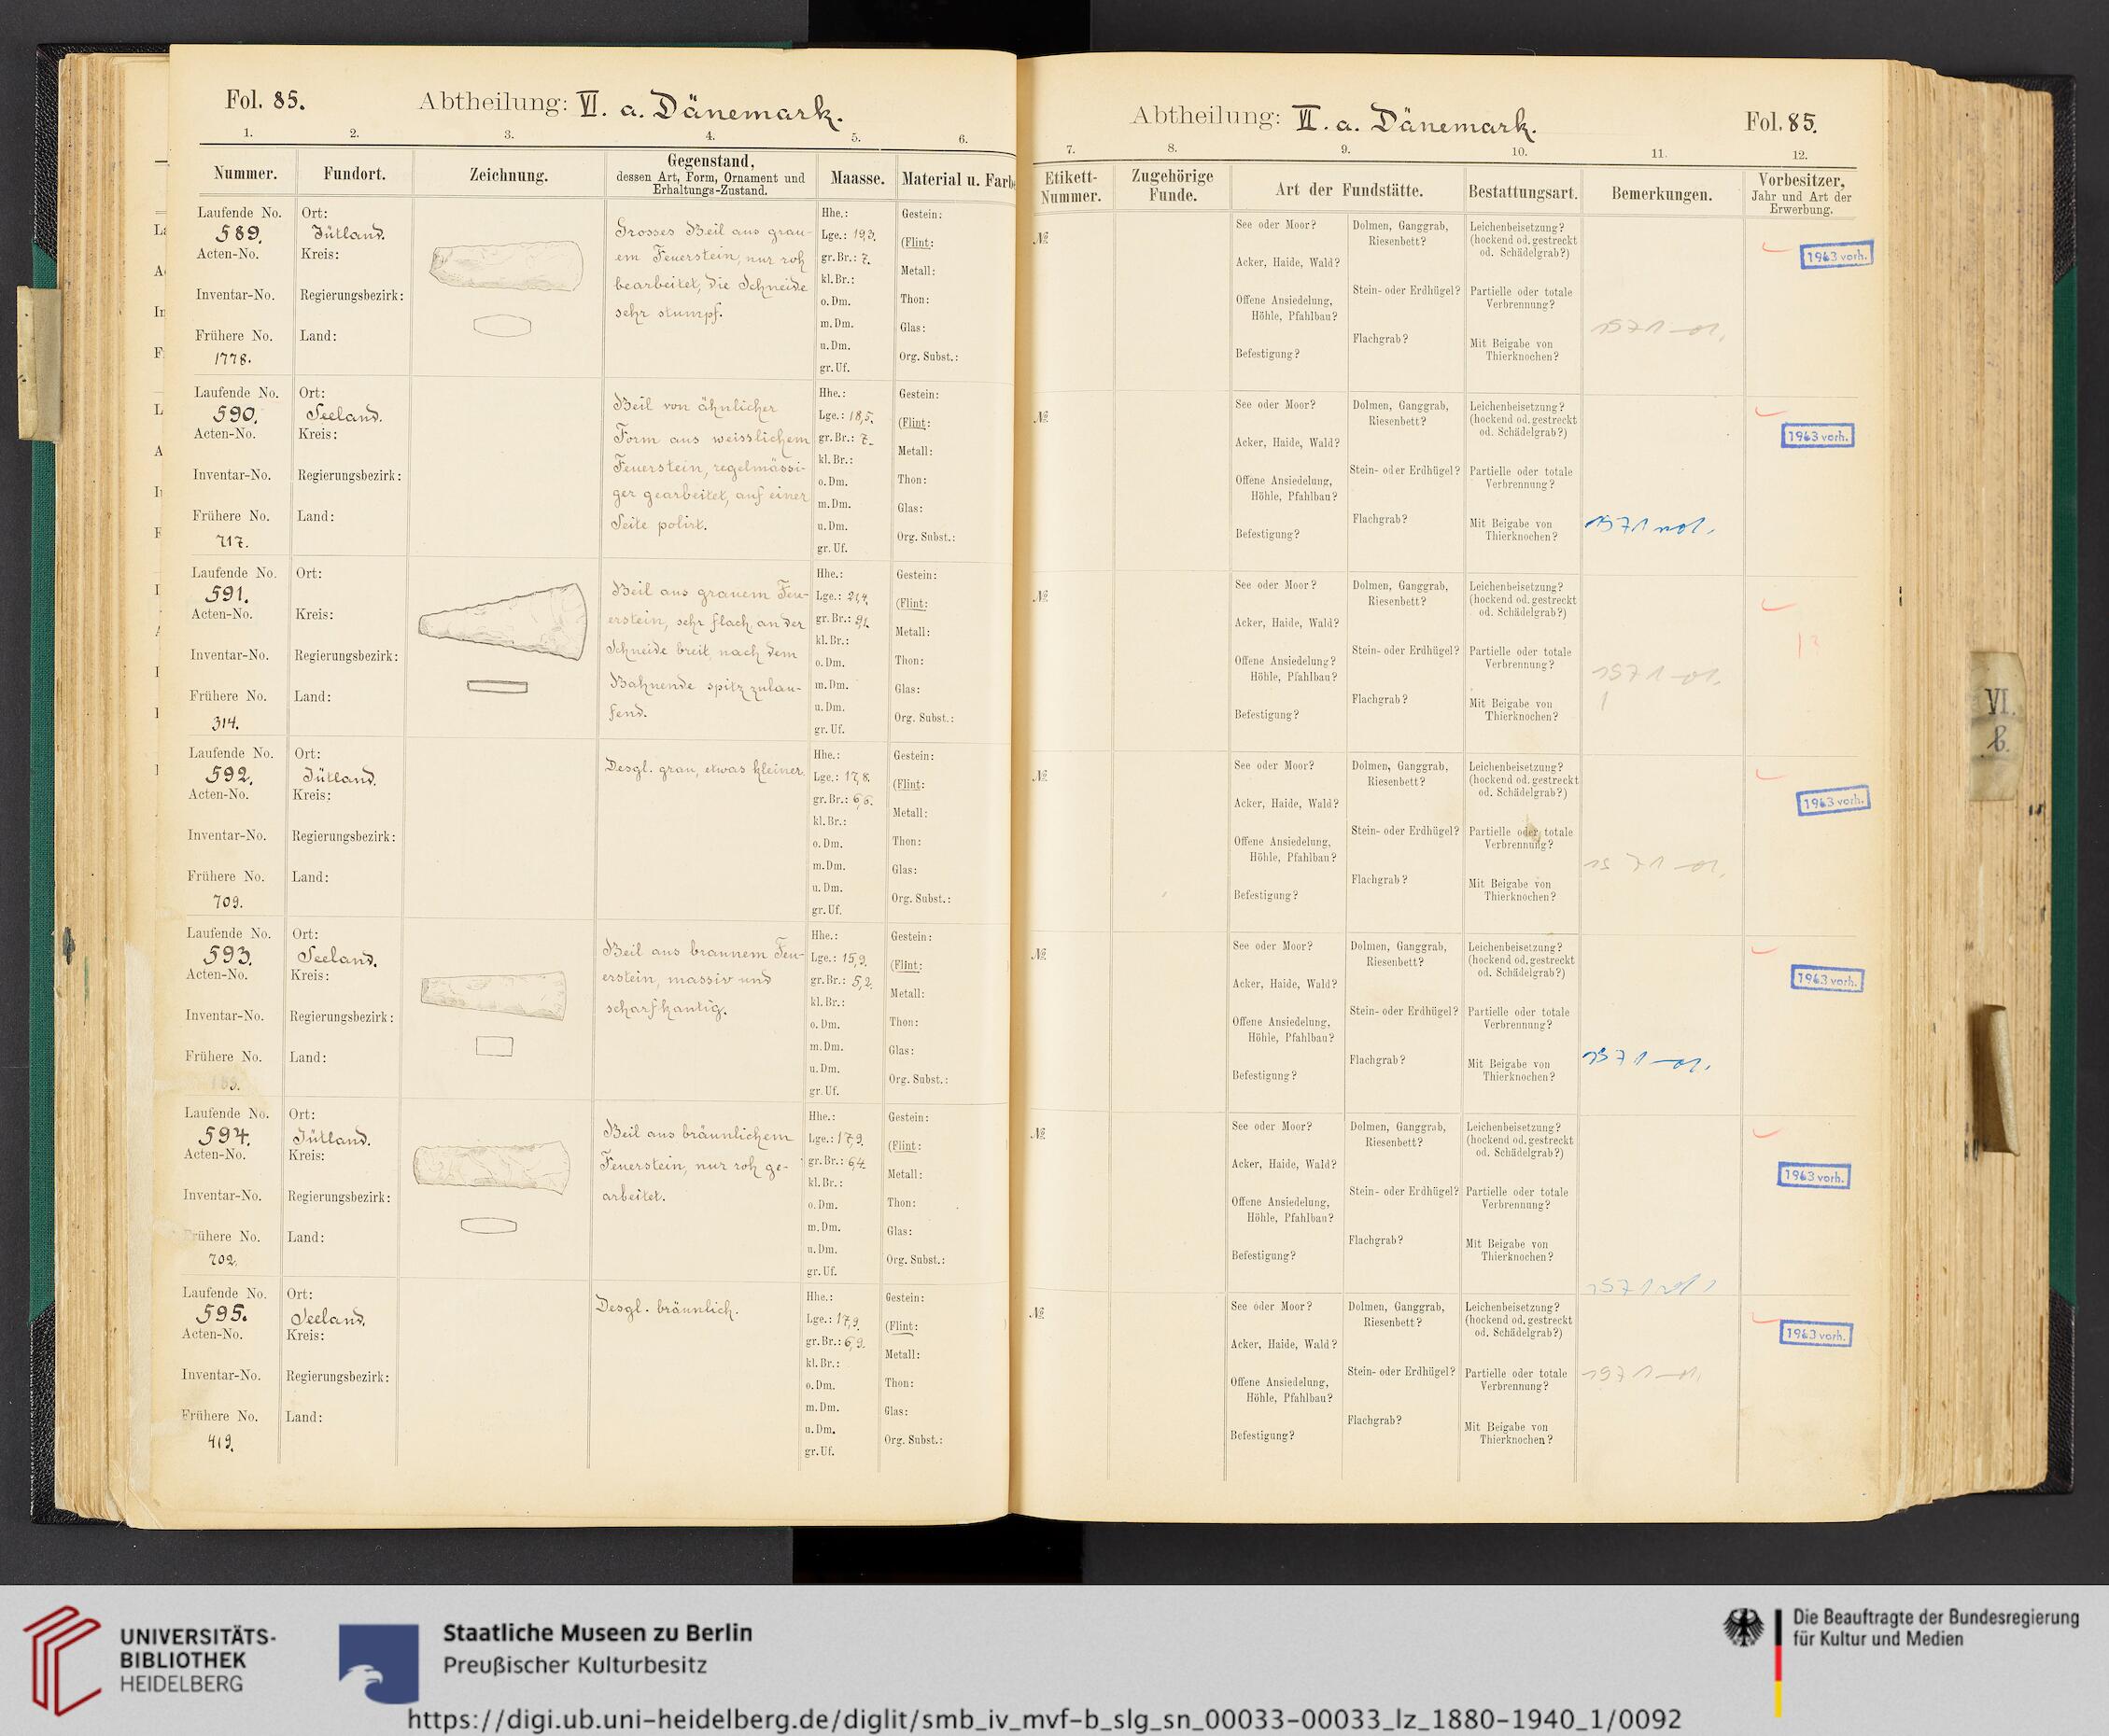 Fol. 85.
Abtheilung: VI. a. Dänemark.
1. 2. 3. 4. 5. 6.
Nummer. Fundort. Zeichnung. Gegenstand, dessen Art, Form, Ornament und Erhaltungs-Zustand. Maasse. Material u. Farbe
Laufende No.
589.
Acten-No.
Inventar-No.
Frühere No.
1778.
Ort:
Jütland.
Kreis:
Regierungsbezirk:
Land:
Grosses Beil aus grau-
em Feuerstein, nur roh
bearbeitet, die Schneide
sehr stumpf.
Hhe.:
Lge.: 19,3.
gr. Br.: 7.
kl. Br.:
o. Dm.
m. Dm.
u. Dm.
gr. Uf.
Gestein:
(Flint:
Metall:
Thon:
Glas:
Org. Subst.:
Laufende No.
590.
Acten-No.
Inventar-No.
Frühere No.
717.
Ort:
Seeland.
Kreis:
Regierungsbezirk:
Land:
Beil von ähnlicher
Form aus weisslichem
Feuerstein, regelmässi-
ger gearbeitet, auf einer
Seite polirt.
Hhe.:
Lge.: 18,5.
gr. Br.: 7.
kl. Br.:
o. Dm.
m. Dm.
u. Dm.
gr. Uf.
Gestein:
(Flint:
Metall:
Thon:
Glas:
Org. Subst.:
Laufende No.
591.
Acten-No.
Inventar-No.
Frühere No.
314.
Ort:
Kreis:
Regierungsbezirk:
Land:
Beil aus grauem Feu-
erstein, sehr flach, an der
Schneide breit, nach dem
Bahnende spitz zulau-
fend.
Hhe.:
Lge.: 21,4.
gr. Br.: 9,1.
kl. Br.:
o. Dm.
m. Dm.
u. Dm.
gr. Uf.
Gestein:
(Flint:
Metall:
Thon:
Glas:
Org. Subst.:
Laufende No.
592.
Acten-No.
Inventar-No.
Frühere No.
709.
Ort:
Jütland.
Kreis:
Regierungsbezirk:
Land:
Desgl. grau, etwas kleiner.
Hhe.:
Lge.: 17,8.
gr. Br.: 6,6.
kl. Br.:
o. Dm.
m. Dm.
u. Dm.
gr. Uf.
Gestein:
(Flint:
Metall:
Thon:
Glas:
Org. Subst.:
Laufende No.
593.
Acten-No.
Inventar-No.
Frühere No.
Ort:
Seeland.
Kreis:
Regierungsbezirk:
Land:
Beil aus braunem Feu-
erstein, massiv und
scharfkantig.
Hhe.:
Lge.: 15,9.
gr. Br.: 5,2.
kl. Br.:
o. Dm.
m. Dm.
u. Dm.
gr. Uf.
Gestein:
(Flint:
Metall:
Thon:
Glas:
Org. Subst.:
Laufende No.
594.
Acten-No.
Inventar-No.
Frühere No.
702.
Ort:
Jütland.
Kreis:
Regierungsbezirk:
Land:
Beil aus bräunlichem
Feuerstein, nur roh ge-
arbeitet.
Hhe.:
Lge.: 17,9.
gr. Br.: 6,4.
kl. Br.:
o. Dm.
m. Dm.
u. Dm.
gr. Uf.
Gestein:
(Flint:
Metall:
Thon:
Glas:
Org. Subst.:
Laufende No.
595.
Acten-No.
Inventar-No.
Frühere No.
419.
Ort:
Seeland.
Kreis:
Regierungsbezirk:
Land:
Desgl. bräunlich.
Hhe.:
Lge.: 17,9.
gr. Br.: 6,9.
kl. Br.:
o. Dm.
m. Dm.
u. Dm.
gr. Uf.
Gestein:
(Flint:
Metall:
Thon:
Glas:
Org. Subst.:
Abtheilung: VI. a. Dänemark.
Fol. 85.
7. 8. 9. 10. 11. 12.
Etikett-Nummer. Zugehörige Funde. Art der Fundstätte. Bestattungsart. Bemerkungen. Vorbesitzer, Jahr und Art der Erwerbung.
№
See oder Moor?
Acker, Haide, Wald?
Offene Ansiedelung,
Höhle, Pfahlbau?
Befestigung?
Dolmen, Ganggrab,
Riesenbett?
Stein- oder Erdhügel?
Flachgrab?
Leichenbeisetzung?
(hockend od. gestreckt
od. Schädelgrab?)
Partielle oder totale
Verbrennung?
Mit Beigabe von
Thierknochen?
1963 vorh.
№
See oder Moor?
Acker, Haide, Wald?
Offene Ansiedelung,
Höhle, Pfahlbau?
Befestigung?
Dolmen, Ganggrab,
Riesenbett?
Stein- oder Erdhügel?
Flachgrab?
Leichenbeisetzung?
(hockend od. gestreckt
od. Schädelgrab?)
Partielle oder totale
Verbrennung?
Mit Beigabe von
Thierknochen?
1963 vorh.
№
See oder Moor?
Acker, Haide, Wald?
Offene Ansiedelung?
Höhle, Pfahlbau?
Befestigung?
Dolmen, Ganggrab,
Riesenbett?
Stein- oder Erdhügel?
Flachgrab?
Leichenbeisetzung?
(hockend od. gestreckt
od. Schädelgrab?)
Partielle oder totale
Verbrennung?
Mit Beigabe von
Thierknochen?
№
See oder Moor?
Acker, Haide, Wald?
Offene Ansiedelung,
Höhle, Pfahlbau?
Befestigung?
Dolmen, Ganggrab,
Riesenbett?
Stein- oder Erdhügel?
Flachgrab?
Leichenbeisetzung?
(hockend od. gestreckt
od. Schädelgrab?)
Partielle oder totale
Verbrennung?
Mit Beigabe von
Thierknochen?
1963 vorh.
№
See oder Moor?
Acker, Haide, Wald?
Offene Ansiedelung,
Höhle, Pfahlbau?
Befestigung?
Dolmen, Ganggrab,
Riesenbett?
Stein- oder Erdhügel?
Flachgrab?
Leichenbeisetzung?
(hockend od. gestreckt
od. Schädelgrab?)
Partielle oder totale
Verbrennung?
Mit Beigabe von
Thierknochen?
1963 vorh.
№
See oder Moor?
Acker, Haide, Wald?
Offene Ansiedelung,
Höhle, Pfahlbau?
Befestigung?
Dolmen, Ganggrab,
Riesenbett?
Stein- oder Erdhügel?
Flachgrab?
Leichenbeisetzung?
(hockend od. gestreckt
od. Schädelgrab?)
Partielle oder totale
Verbrennung?
Mit Beigabe von
Thierknochen?
1963 vorh.
№
See oder Moor?
Acker, Haide, Wald?
Offene Ansiedelung,
Höhle, Pfahlbau?
Befestigung?
Dolmen, Ganggrab,
Riesenbett?
Stein- oder Erdhügel?
Flachgrab?
Leichenbeisetzung?
(hockend od. gestreckt
od. Schädelgrab?)
Partielle oder totale
Verbrennung?
Mit Beigabe von
Thierknochen?
1963 vorh.
VI.
b.
UNIVERSITÄTS-
BIBLIOTHEK
HEIDELBERG
Staatliche Museen zu Berlin
Preußischer Kulturbesitz
Die Beauftragte der Bundesregierung
für Kultur und Medien
https://digi.ub.uni-heidelberg.de/diglit/smb_iv_mvf-b_slg_sn_00033-00033_lz_1880-1940_1/0092